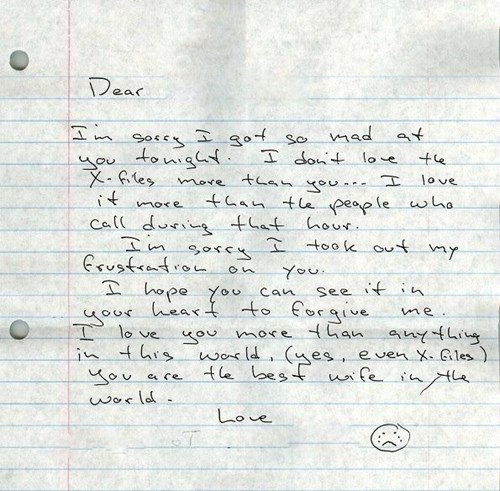 Dear
I'm sorry I got so mad at
you tonight. I don't love the
X-files more than you... I love
it more than the people who
call during that hour.
I'm sorry I took out my
frustration on you.
I hope you can see it in
your heart to forgive me.
I love you more than anything
in this world, (yes, even X-files)
You are the best wife in the
world.
Love